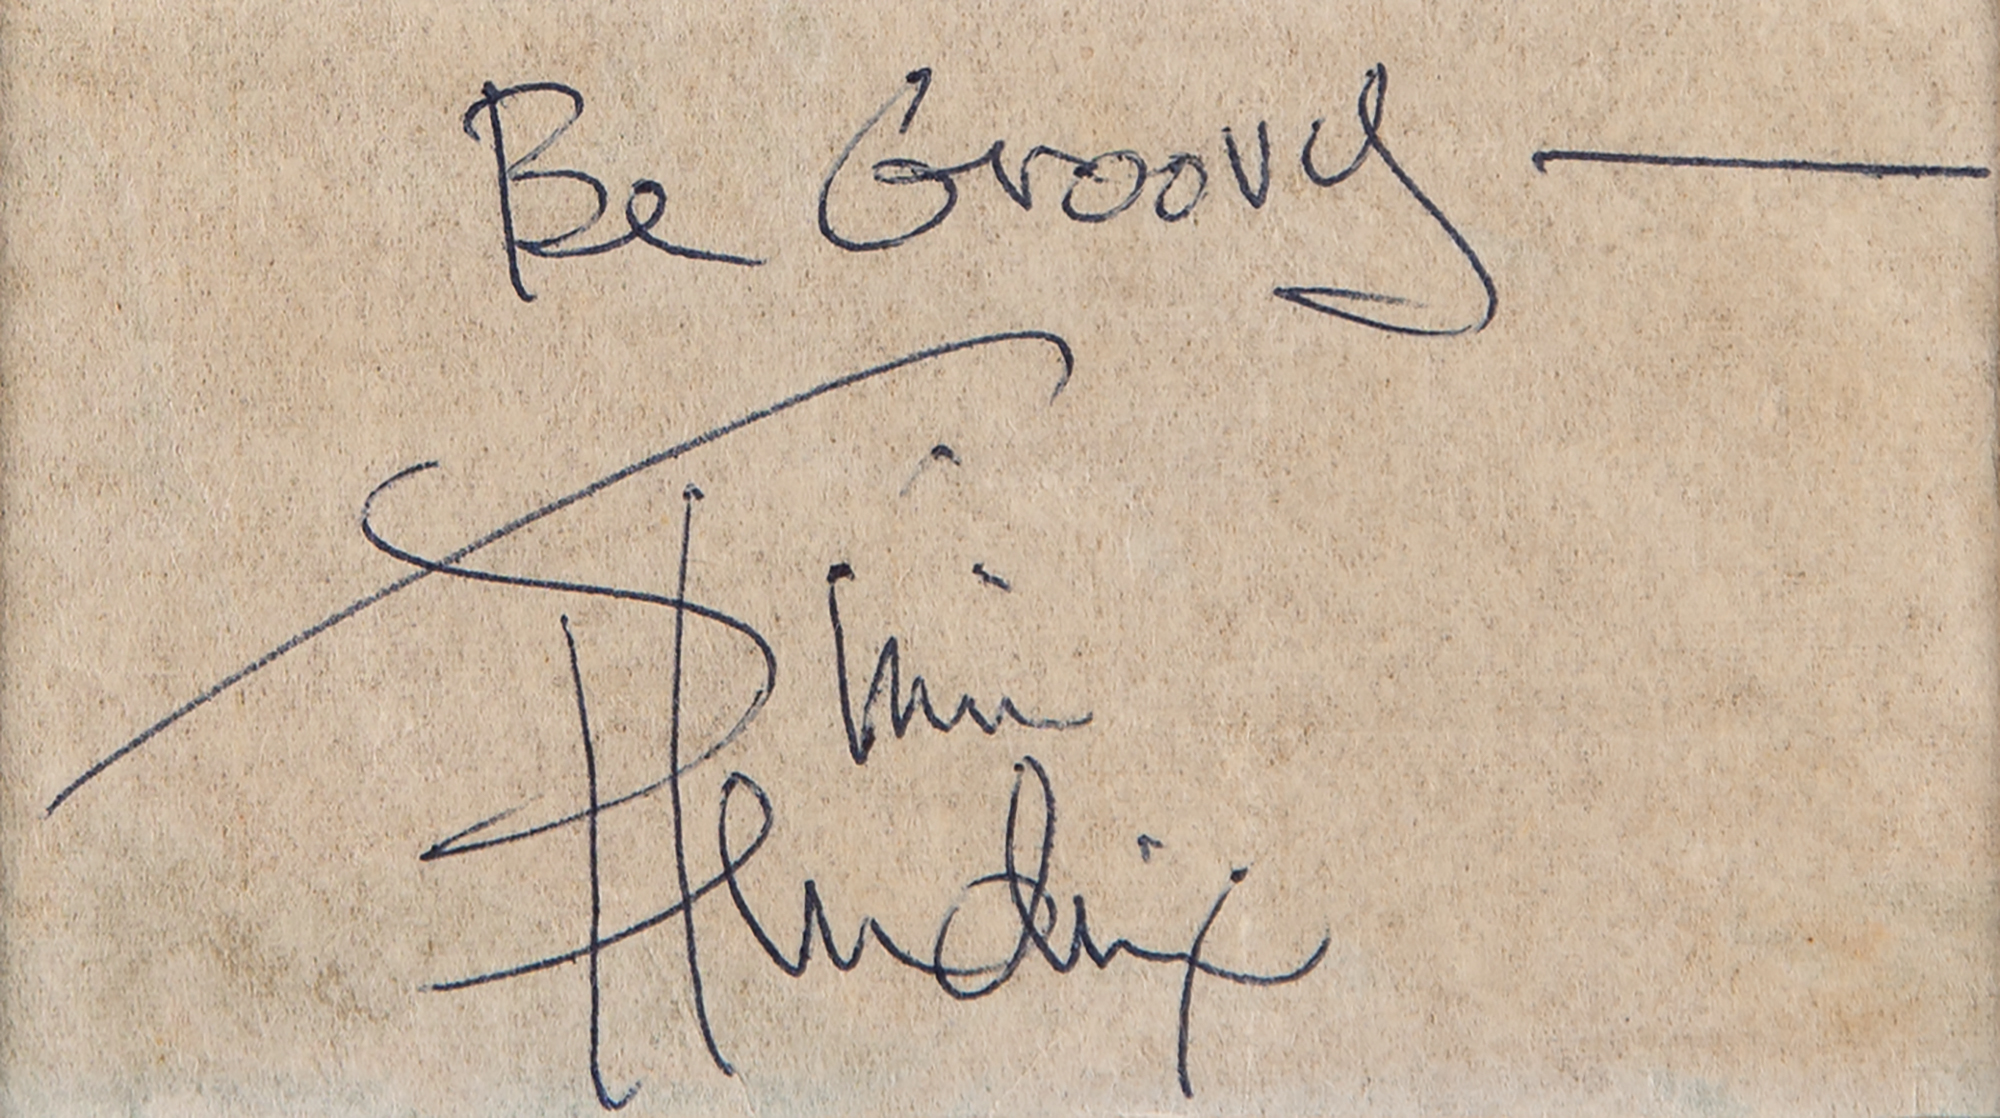 Be Groovy —
Jimi
Hendrix